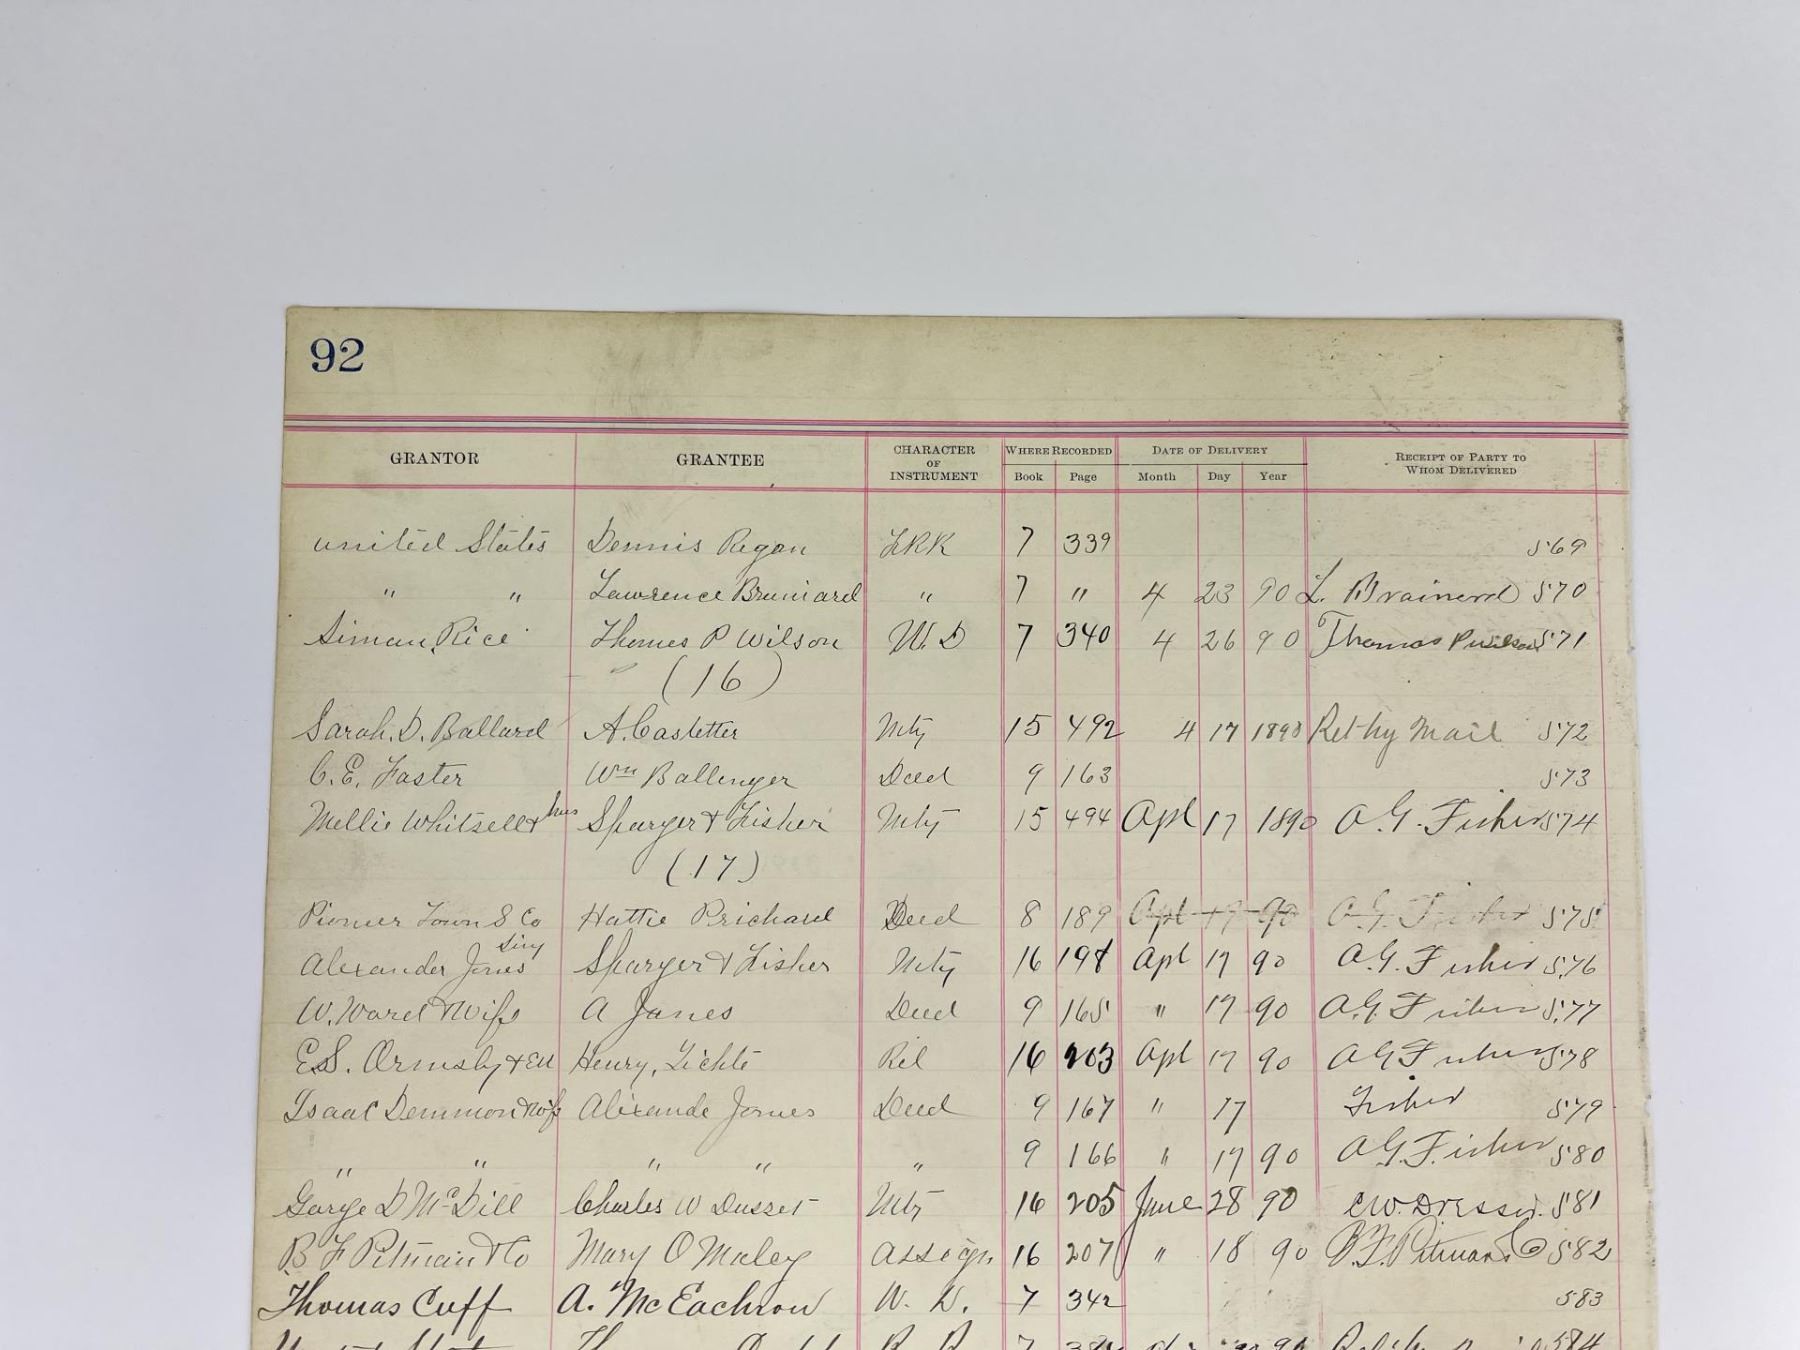 92
GRANTOR GRANTEE CHARACTER OF INSTRUMENT WHERE RECORDED Book Page DATE OF DELIVERY Month Day Year RECEIPT OF PARTY TO WHOM DELIVERED
United States Dennis Regan 7 339 569
" " Lawrence Bruniard " 7 " 4 23 90 L. Brainerd 570
Siman Rice Thomes P Wilson W. D 7 340 4 26 90 Thomas P Wilson 571
(16)
Sarah. D. Ballard A. Castetter Mtg 15 492 4 17 1890 Ret by Mail 572
C. E. Faster Wm Ballenger Deed 9 163 573
Mellie Whitsell & hus Sparger & Fisher Mtg 15 494 Apl 17 1890 A. G. Fisher 574
(17)
Pioneer Town S Co Hattie Prichard Deed 8 189 Apl 17 90 A. G. Fisher 575
Alexander Jones Sparger & Fisher Mtg 16 198 Apl 17 90 A. G. Fisher 576
W. Ward & Wife A Janes Deed 9 165 " 17 90 A. G. Fisher 577
E. S. Ormsby & Henry, Lichte Rel 16 203 Apl 17 90 A G Fisher 578
Isaac Demmon & Wife Alexande Jones Deed 9 167 " 17 Fisher 579
" " " " " 9 166 " 17 90 A G. Fisher 580
Gorge D McDill Charles W Dusser Mtg 16 205 June 28 90 C. W. Dresser. 581
B F Pitman & Co Mary O Maley Assign 16 207 " 18 90 B. F. Pitman & Co 582
Thomas Cuff A. McEachron W. D. 7 342 583
584